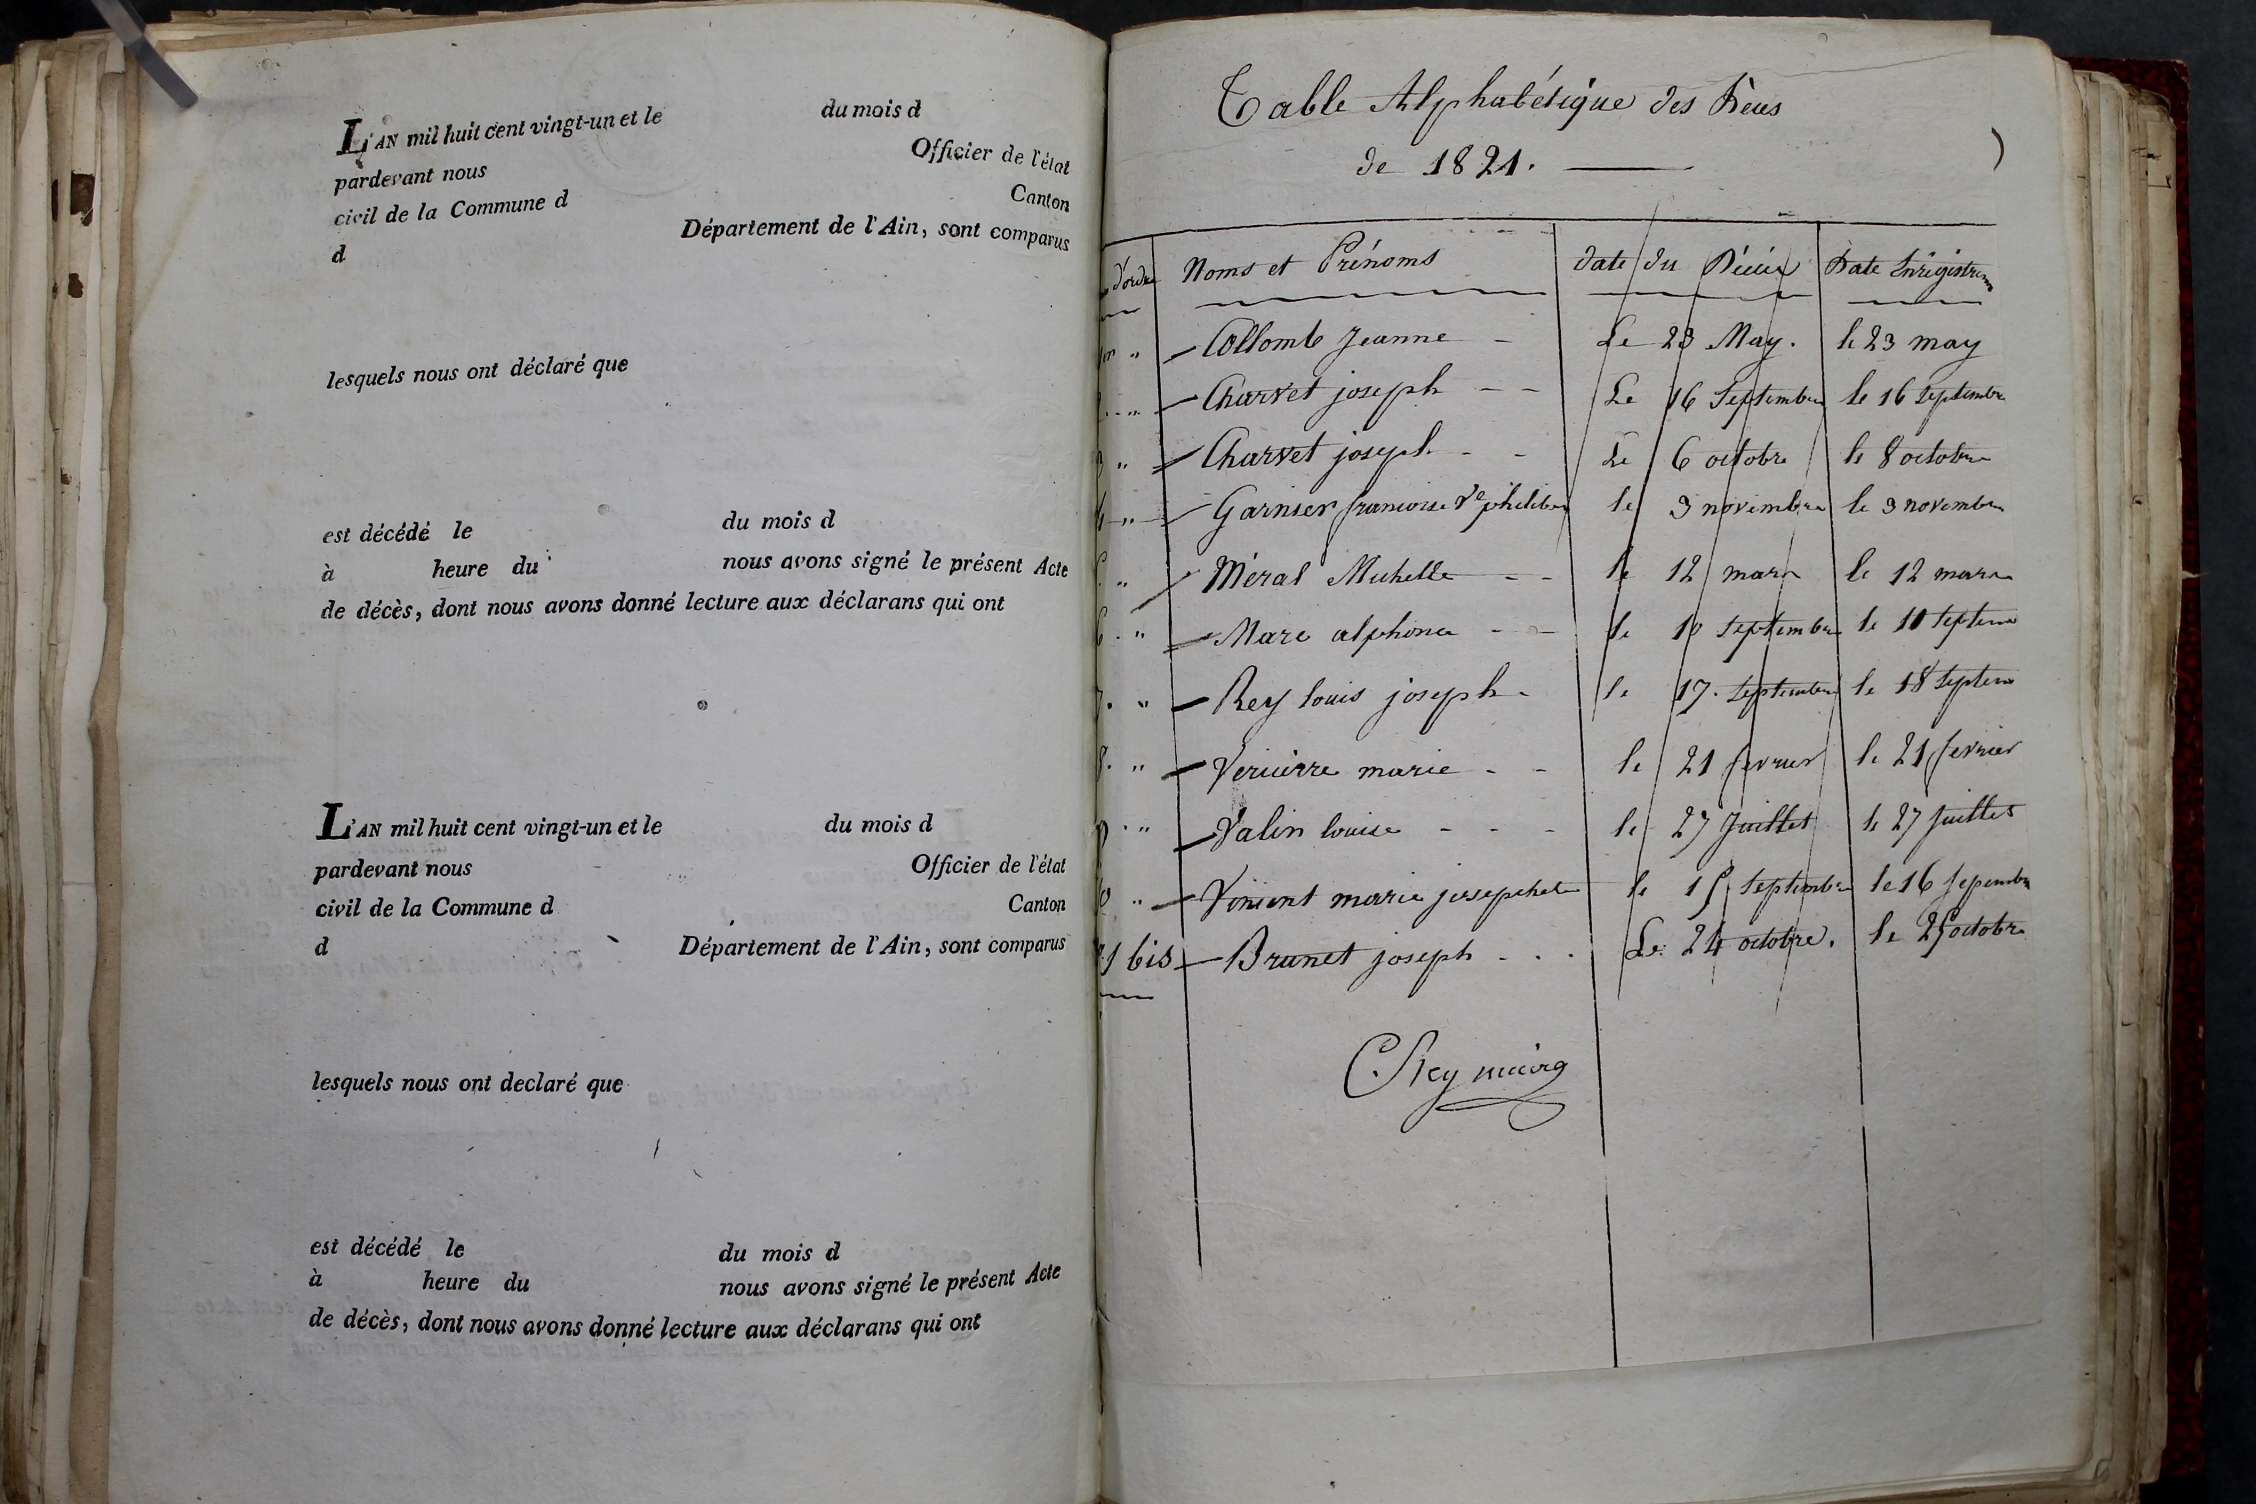 L'AN mil huit cent vingt-un et le du mois d
pardevant nous Officier de l'état
civil de la Commune d Canton
d Département de l'Ain, sont comparus
lesquels nous ont déclaré que
est décédé le du mois d
à heure du nous avons signé le présent Acte
de décès, dont nous avons donné lecture aux déclarans qui ont
L'AN mil huit cent vingt-un et le du mois d
pardevant nous Officier de l'état
civil de la Commune d Canton
d Département de l'Ain, sont comparus
lesquels nous ont declaré que
est décédé le du mois d
à heure du nous avons signé le présent Acte
de décès, dont nous avons donné lecture aux déclarans qui ont
Table Alphabétique des Décès
de 1821.
d'ordre Noms et Prénoms date du Décès Date Enregistrem
" Collomb Jeanne Le 23 May. le 23 may
" Charvet joseph Le 16 Septembre le 16 Septembre
3 " Charvet joseph Le 6 octobre le 8 octobre
4 " Garnier francoise Ve philiber le 3 novembre le 3 novembre
" Méral Michelle le 12 mars le 12 mars
6 " Marc alphonse le 10 septembre le 10 septem
7 " Rey louis joseph le 17 septembre le 18 septem
8 " Veruierre marie le 21 fevrier le 21 fevrier
9 " Valin louise le 27 Juillet le 27 Juillet
10 " Vincent marie josephete le 15 septembre le 16 sepembre
11 bis Brunet joseph Le 24 octobre. le 25 octobre
C. Rey maire